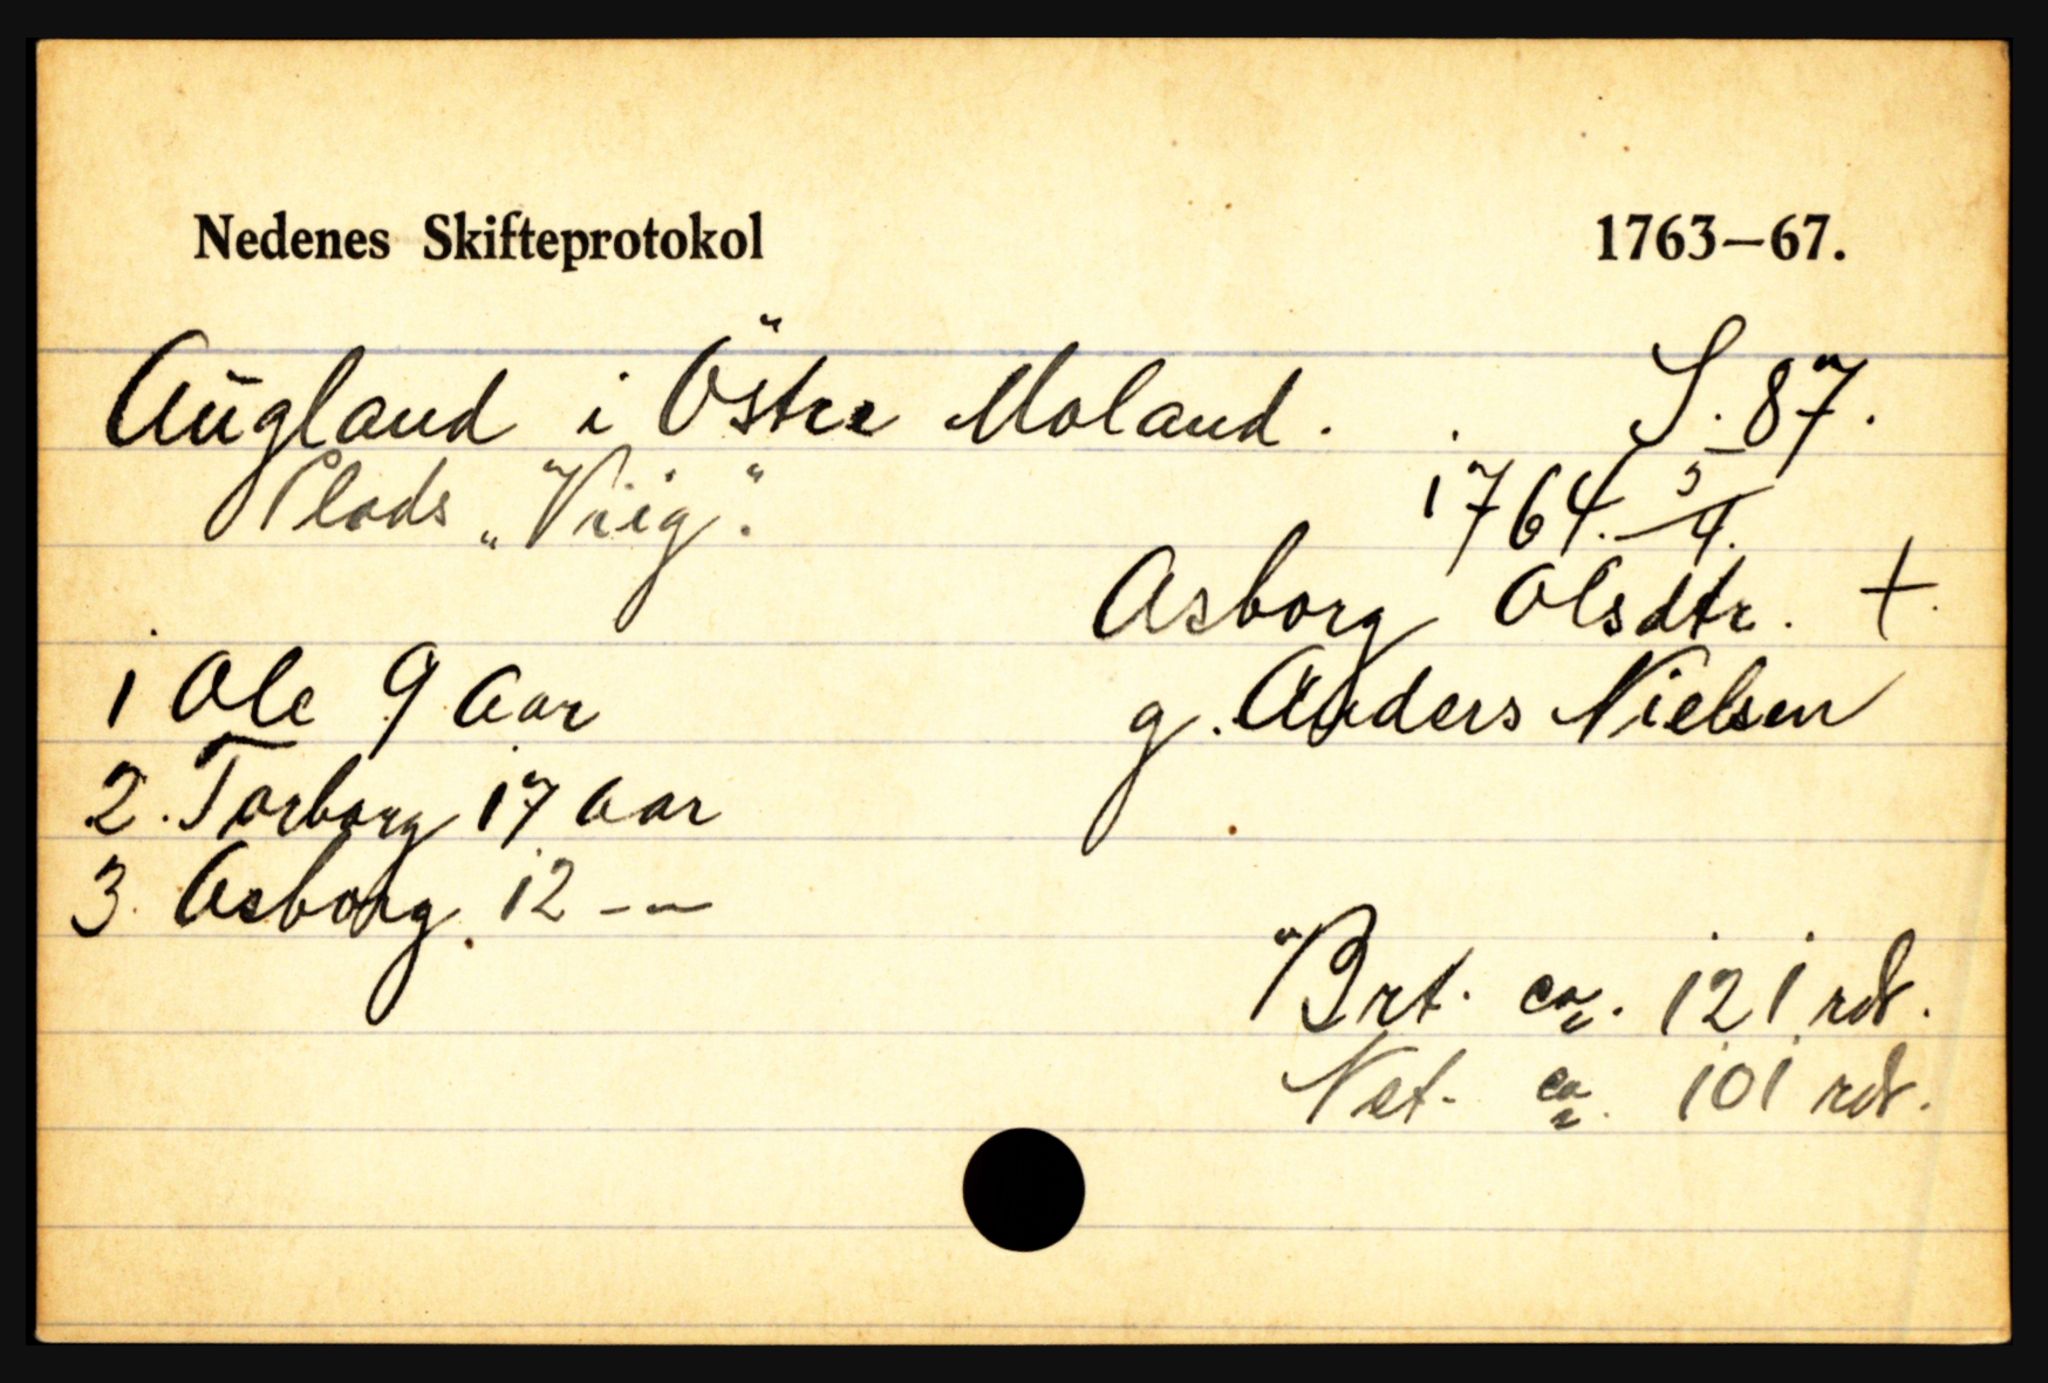 Nedenes Skifteprotokol 1763—67.
Augland i Östre Moland. S. 87.
Plads „Viig". 1764. 5/4.
Asborg Olsdtr. +
1 Ole 9 Aar g. Anders Nielsen
2. Torborg 17 Aar
3. Asborg 12 –––
Brt. ca. 121 rd.
Net. ca. 101 rd.